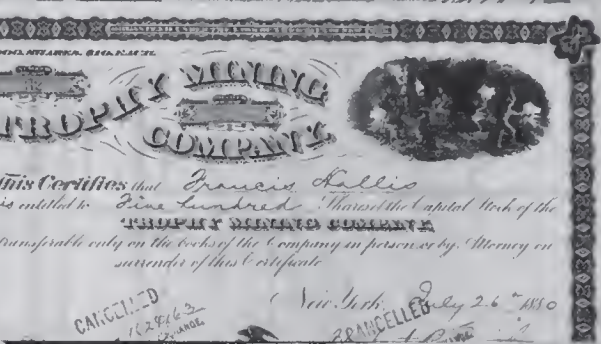 TROPHY MINING
COMPANY.
This Certifies that Francis Hollis
is entitled to Five hundred Shares of the Capital Stock of the
TROPHY MINING COMPANY
transferable only on the books of the Company in person or by Attorney on
surrender of this Certificate
New York, July 26th 1880
CANCELLED
CANCELLED